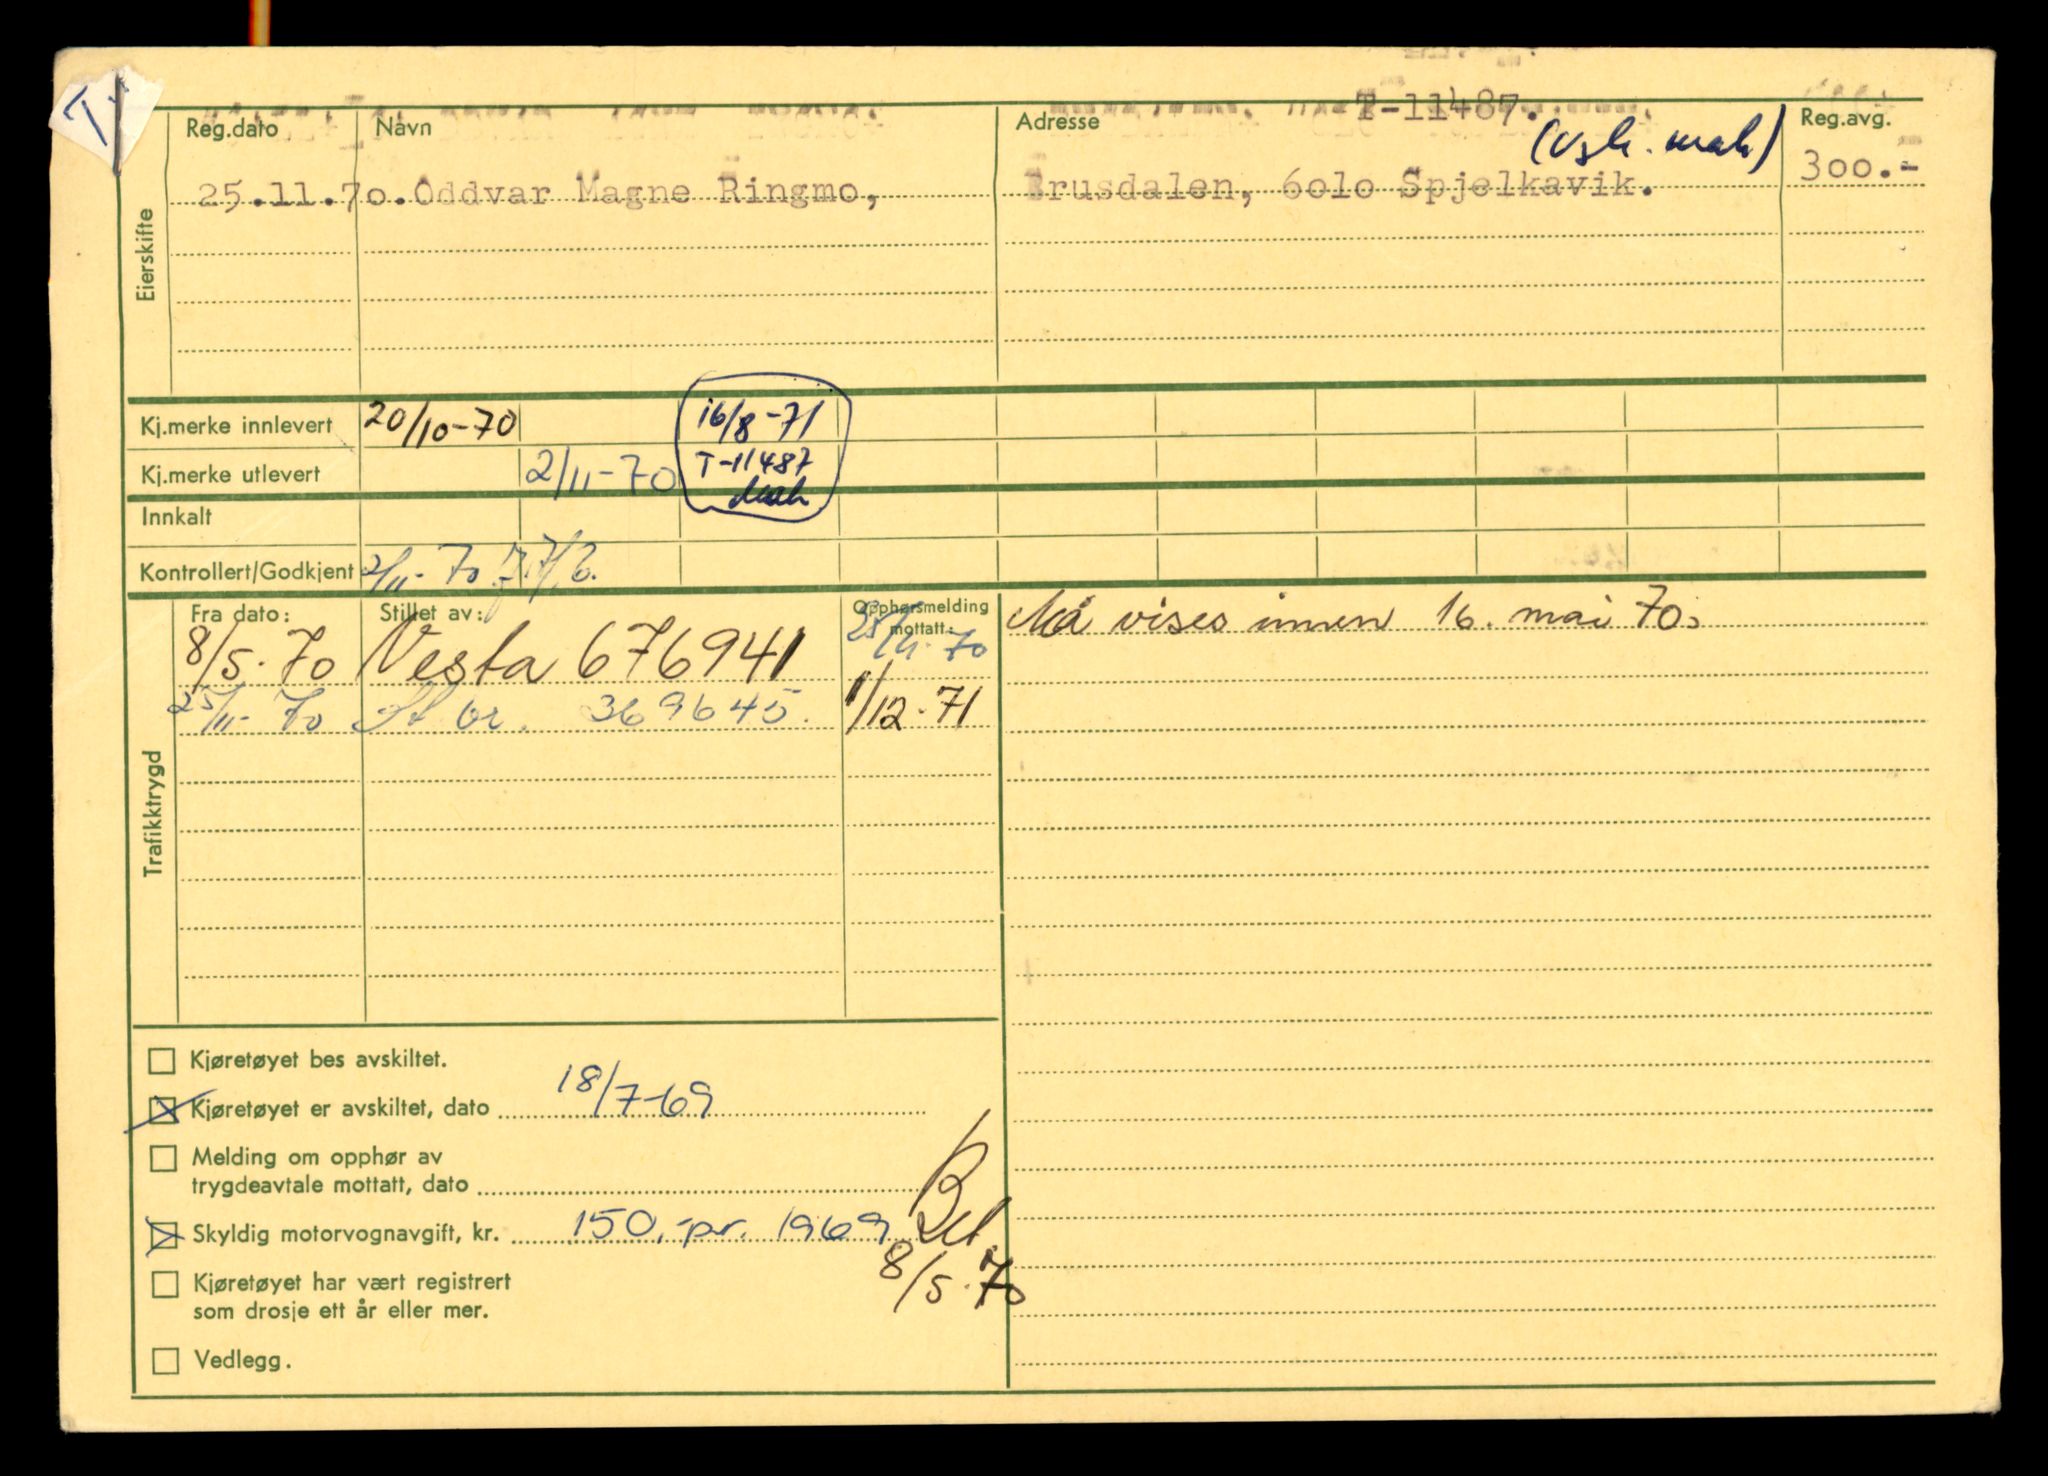 T
T-11487.
Reg.dato Navn Adresse Reg.avg.
25.11.70. Oddvar Magne Ringmo, Brusdalen, 6010 Spjelkavik. 300.-
Eierskifte
Kj.merke innlevert 20/10-70 16/8-71
Kj.merke utlevert 2/11-70 T-11487
Innkalt
Kontrollert/Godkjent 2/11-70
Trafikktrygd
Fra dato: Stillet av: Opphørsmelding mottatt:
8/5.70 Vesta 676941 25/11.70
25/11-70 St br. 369645. 1/12-71
Må vises innen 16. mai 70.
Kjøretøyet bes avskiltet.
Kjøretøyet er avskiltet, dato 18/7-69
Melding om opphør av
trygdeavtale mottatt, dato
Skyldig motorvognavgift, kr. 150,- pr. 1969 Bet.
8/5.70
Kjøretøyet har vært registrert
som drosje ett år eller mer.
Vedlegg.